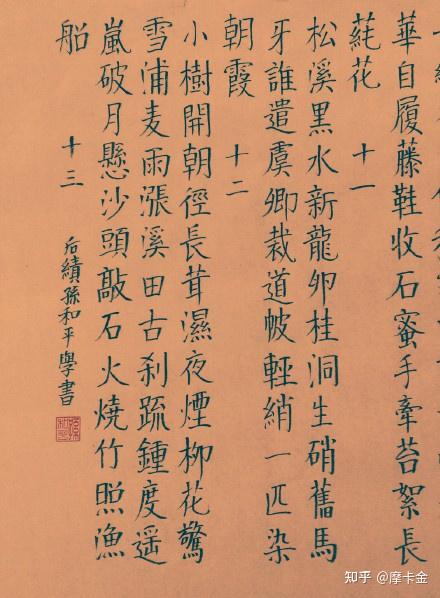 華自履藤鞋收石蜜手牽苔絮長
蒓花 十一
松溪黑水新龍卵桂洞生硝舊馬
牙誰遣虞卿裁道帔輕綃一匹染
朝霞 十二
小樹開朝徑長茸濕夜煙柳花驚
雪浦麦雨漲溪田古刹疏鍾度遥
嵐破月懸沙頭敲石火燒竹照漁
船 十三
后績孫和平學書
知乎 @摩卡金